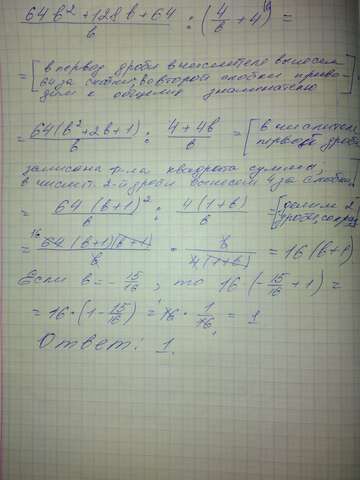 (64b² + 128b + 64)/b : (4/b + 4) =
= [в первой дроби в числителе выносим
64 за скобки, во второй скобки приво-
дим к общему знаменателю
= 64(b²+2b+1)/b : (4+4b)/b = [в числителе
первой дроби
записана ф-ла квадрата суммы,
в числит. 2-й дроби выносим 4 за скобки
= 64 (b+1)²/b : 4(1+b)/b = [делим 2
дроби,
= 16 64 (b+1)(b+1)/b · b/4(1+b) = 16(b+1)
Если b = -15/16, то 16(-15/16 + 1) =
= 16·(1 - 15/16) = 16 · 1/16 = 1
Ответ: 1.